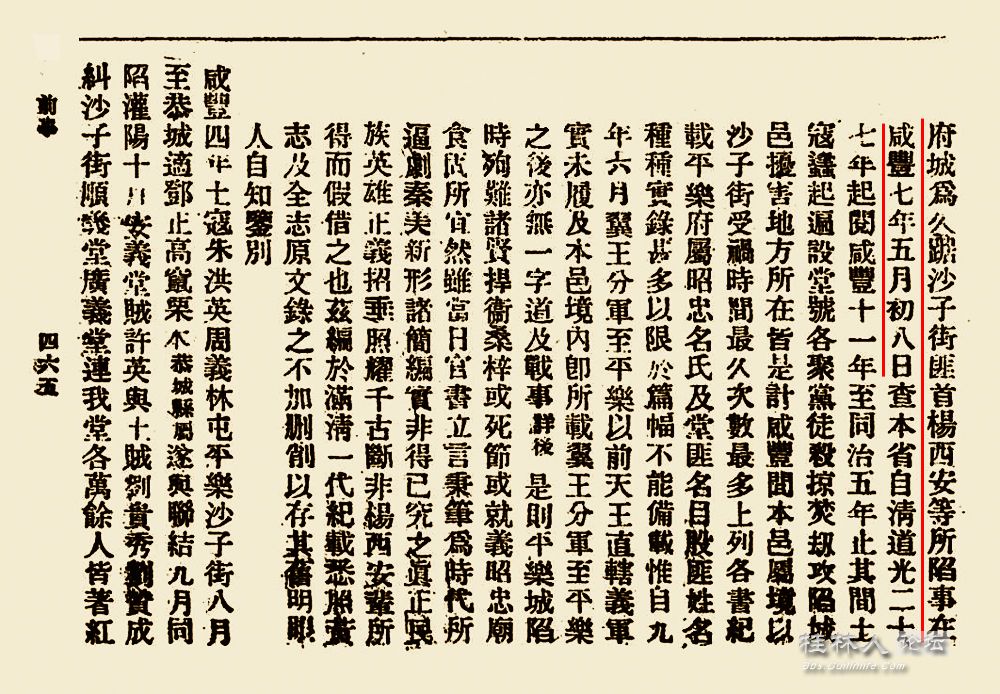 府城爲久踞沙子街匪首楊西安等所陷事在
咸豐七年五月初八日查本省自清道光二十
七年起閱咸豐十一年至同治五年止其間土
寇蠭起遍設堂號各聚黨徒殺掠焚刼攻陷城
邑擾害地方所在皆是計咸豐間本邑屬境以
沙子街受禍時間最久次數最多上列各書紀
載平樂府屬昭忠名氏及堂匪名目股匪姓名
種種實錄甚多以限於篇幅不能備載惟自九
年六月翼王分軍至平樂以前天王直轄義軍
實未履及本邑境內卽所載翼王分軍至平樂
之後亦無一字道及戰事詳後是則平樂城陷
時殉難諸賢捍衞桑梓或死節或就義昭忠廟
食固所宜然雖當日官書立言秉筆爲時代所
逼劇秦美新形諸簡編實非得已究之眞正民
族英雄正義招垂照耀千古斷非楊西安輩所
得而假借之也茲編於滿清一代紀載悉照黃
志及全志原文錄之不加删削以存其舊明眼
人自知鑒別
咸豐四年土寇朱洪英周義林屯平樂沙子街八月
至恭城適鄧正高竄栗木恭城縣屬遂與聯結九月同
陷灌陽十月安義堂賊許英與土賊劉貴秀劉贊成
糾沙子街順義堂廣義堂連我堂各萬餘人皆著紅
前事
四六五
桂林人论坛
bbs.guilinlife.com